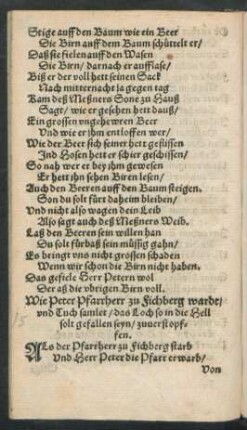 Stige auff den Baum wie ein Beer
Die Birn auff dem Baum schüttelt er/
Daß sie fielen auff den Wasen
Die Birn/ darnach er aufflase/
Biß er der voll hett seinen Sack
Nach mitternacht ja gegen tag
Kam deß Meßners Sone zu Hauß
Sagt/ wie er gesehen hett dauß/
Ein grossen vngehewren Beer
Vnd wie er jhm entloffen wer/
Wie der Beer sich seiner hett geflissen
Jnd Hosen hett er schier geschissen/
So nah wer er bey jhm gewesen
Er hett jhn sehen Biren lesen/
Auch den Beeren auff den Baum steigen.
Son du solt fürt daheim bleiben/
Vnd nicht also wagen dein Leib
Also sagt auch deß Meßners Weib.
Laß den Beeren sein willen han
Du solt fürbaß sein müssig gahn/
Es bringt vns nicht grossen schaden
Wenn wir schon die Birn nicht haben.
Das gefiele Herr Petern wol
Der aß die vbrigen Birn voll.
Wie Peter Pfarrherr zu Fichberg wardt/
vnd Tuch samlet/ das Loch so in die Hell
solt gefallen seyn/ zuuerstopf-
fen.
ALs der Pfarrherr zu Fichberg starb
Vnd Herr Peter die Pfarr erwarb/
Von